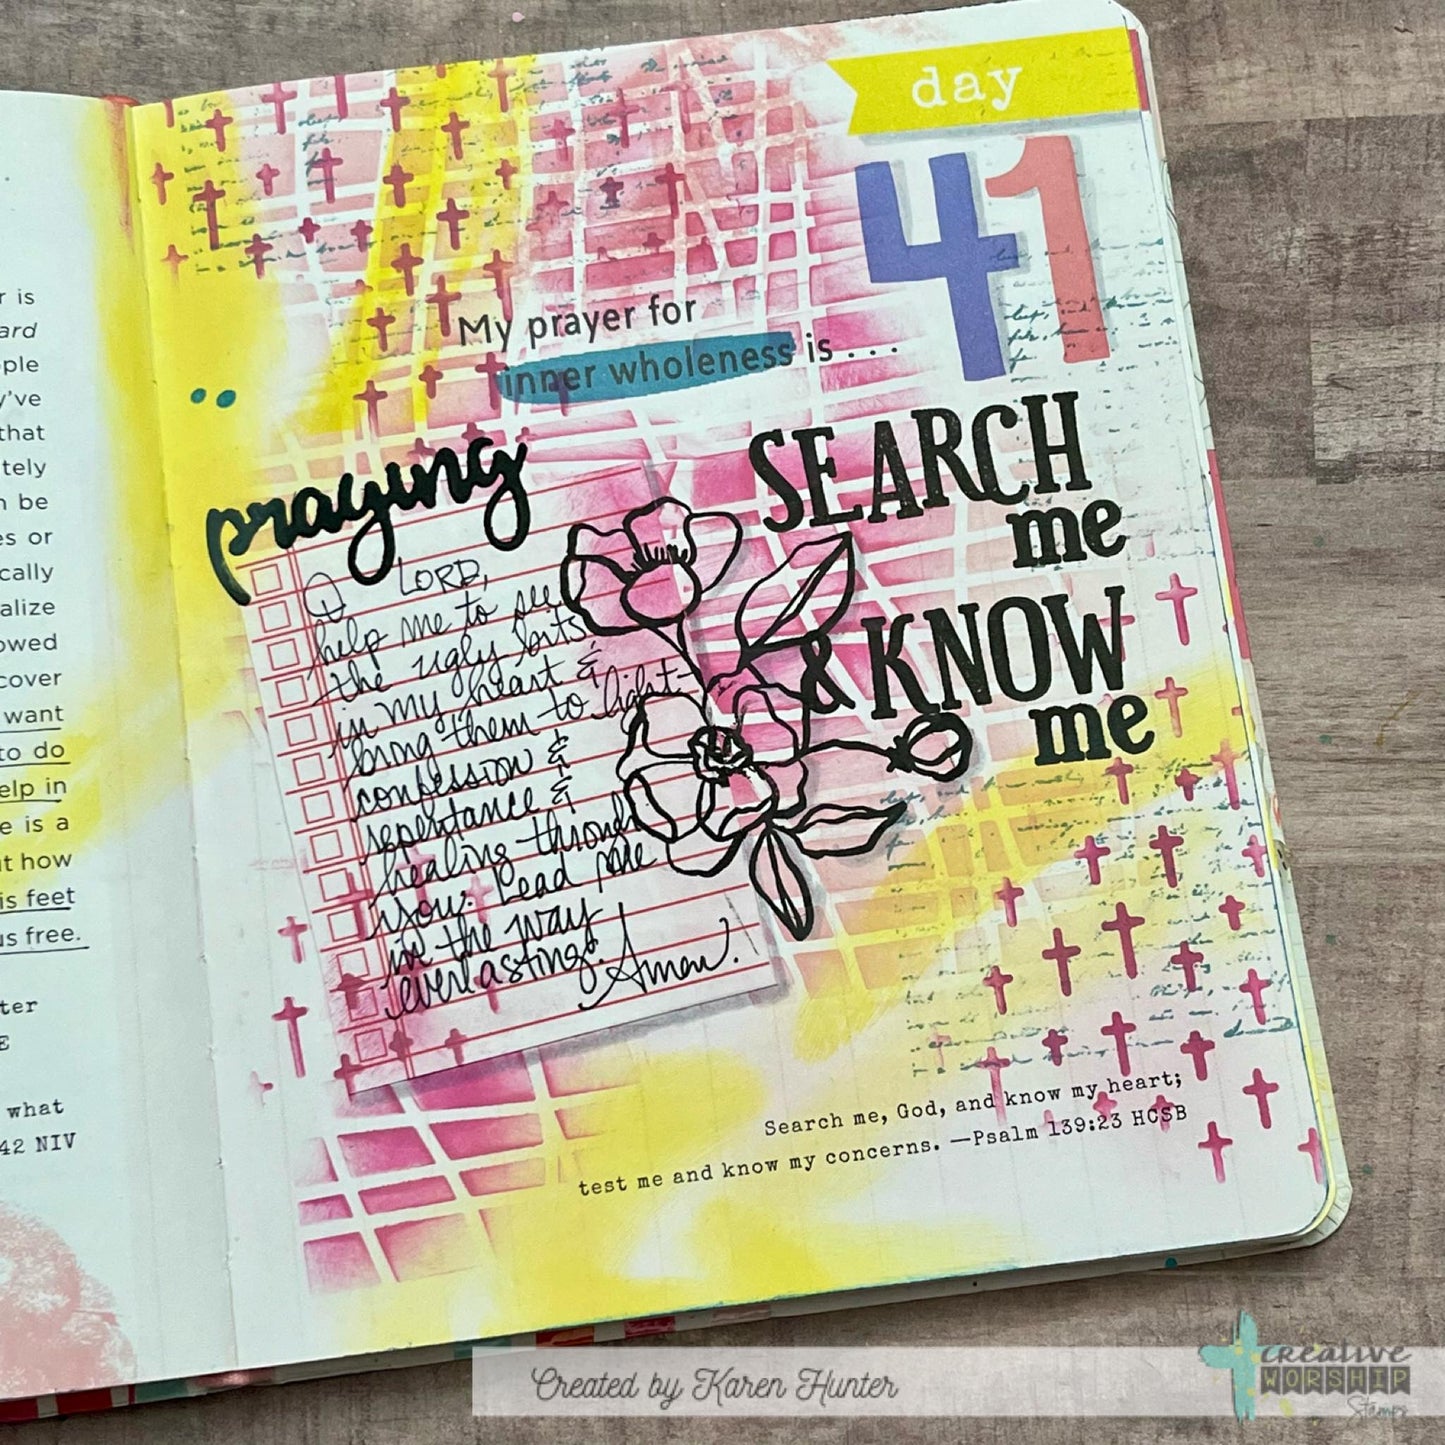 r is
ard
ople
y've
that
tely
n be
es or
cally
alize
owed
cover
want
to do
elp in
e is a
ut how
is feet
us free.
ter
E
what
42 NIV
day
41
My prayer for
inner wholeness is . . .
praying
SEARCH
me
& KNOW
me
O LORD,
help me to see
the ugly parts
in my heart &
bring them to light-
confession &
repentance &
healing through
you. Lead me
in the way
everlasting.
Amen.
Search me, God, and know my heart;
test me and know my concerns. —Psalm 139:23 HCSB
Created by Karen Hunter
CREATIVE
WORSHIP
Stamps